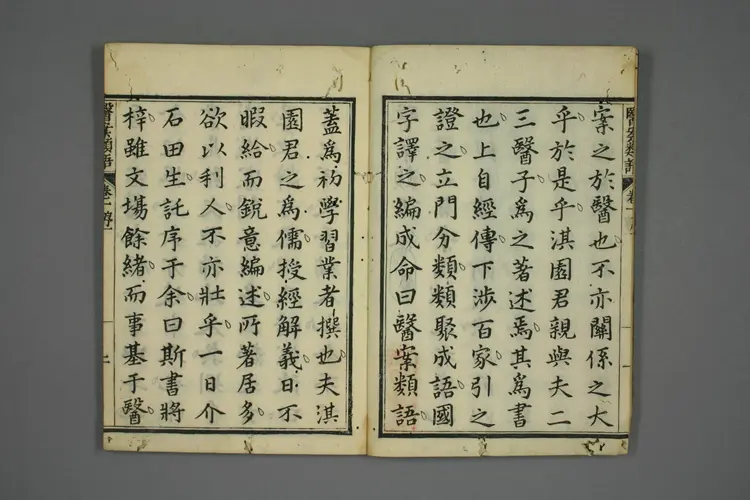 案之於醫也不亦關係之大
乎於是乎淇園君親與夫二
三醫子爲之著述焉其爲書
也上自經傳下涉百家引之
證之立門分類類聚成語國
字譯之編成命曰醫案類語
蓋爲初學習業者撰也夫淇
園君之爲儒授經解義日不
暇給而銳意編述所著居多
欲以利人不亦壯乎一日介
石田生託序于余曰斯書將
梓雖文場餘緒而事基于醫
醫案類語 卷一